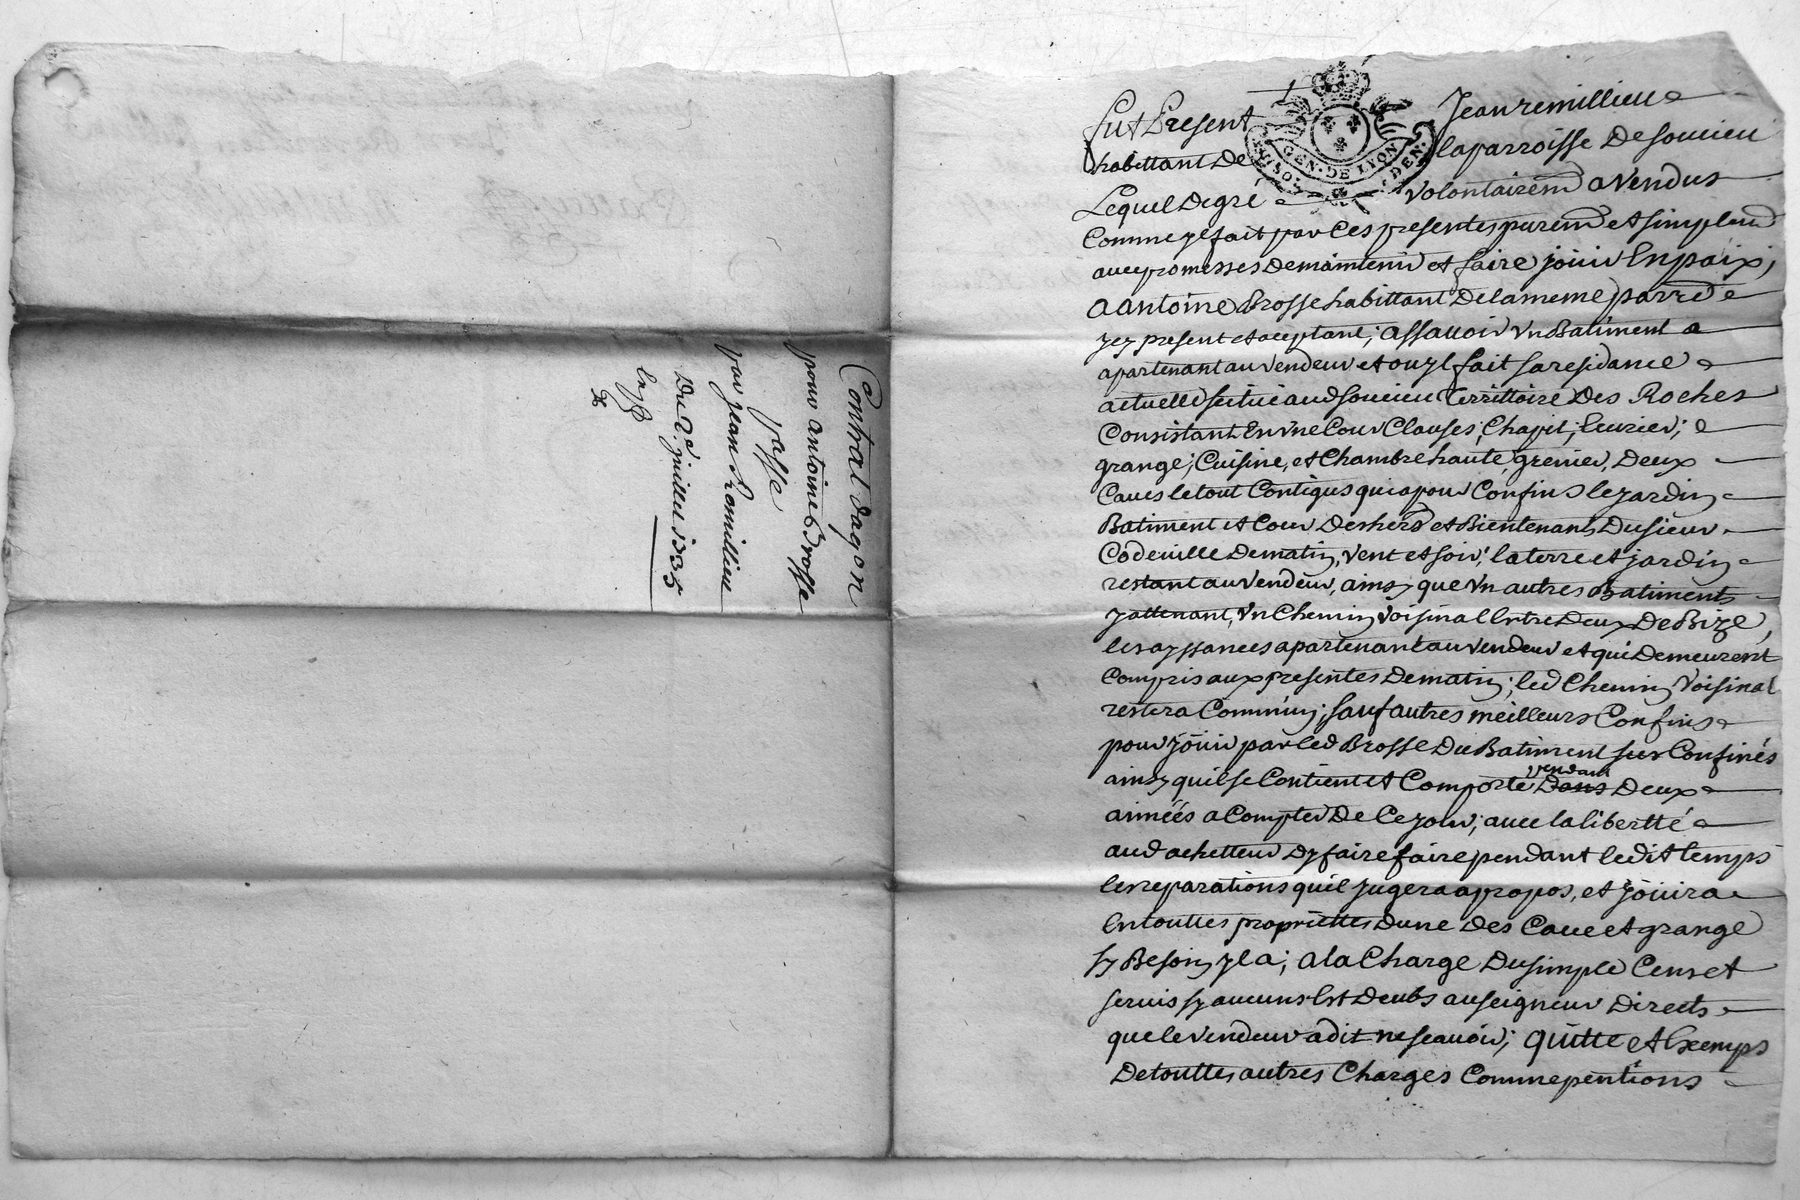 Contrat dàqon
pour antoine Brosse
passé
par jean Romillieu
Du 2e. juillet 1735
Fut Present Jean remillieu
GEN. DE LYON
habittant De laparroisse De soucieu
Lequel De gré volontairemt a vendus
Comme yl fait par Ces presentes puremt et simplemt
avec promesses De maintenir et faire joüir En paix,
a antoine Brosse habittant De la meme parr.
yey present et aceptant; assauoir vn Batiment
apartenant au vendeur et ou yl fait sa residance
actuelle scitué aud soucieu Territtoire Des Roches
Consistant En vne Cour Clauses, Chapit, Ecurier;
grange, Cuisine, et Chambre haute, grenier, Deux
Caues le tout Contigus qui a pour Confins le jardin
Batiment et Cour Des hers et Bientenants Du sieur
Codeuille De matin, vent et soir; la terre et jardin
restant au vendeur, ainsy que vn autres Batiments
y attenant, vn Chemin voisinal Entre Deux De Bize,
les ayssances apartenant au vendeur et qui Demeurent
Compris aux presentes De matin; led Chemin voisinal
restera Commun; sauf autres meilleurs Confins
pour joüir par led Brosse Du Batiment sus Confinés
ainsy quil se Contient et Comporte vendant Dans Deux
années a Compter De Ce jour; auec la libertté
aud achetteur Dy faire faire pendant ledit temps
les reparations quil jugera apropos, et joüira
En touttes propriettes Dune Des Caue et grange
sy Besoin yl a; a la Charge Du simple Cens et
seruis sy aucuns Est Deubs au seigneur Directs
que le vendeur a dit ne scauoir; quitte et Exemps
De touttes autres Charges Comme pentions